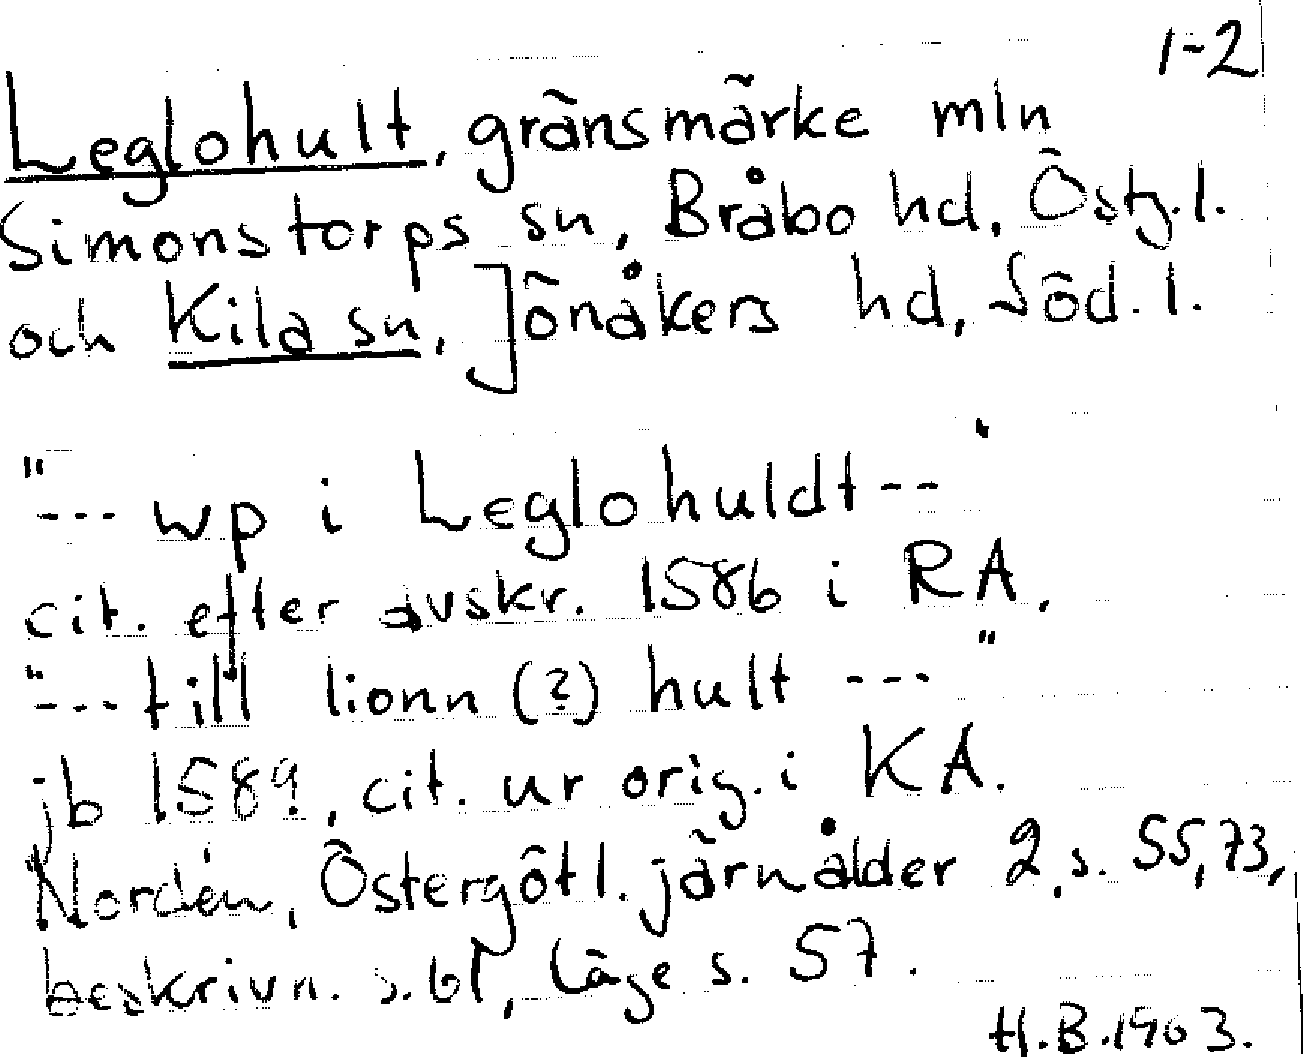 1-2
Leglohult, gränsmärke mln
Simonstorps sn, Bråbo hd, Östg.l.
och Kila sn, Jönåkers hd, Söd.l.
"--- wp i Leglohuldt--"
cit. efter avskr. 1586 i RA.
"--- till lionn (?) hult ---"
jb 1589, cit. ur orig. i KA.
Nordén, Östergötl. järnålder 2, s. 55, 73,
beskrivn. s. 61, läge s. 57.
H.B. 1963.